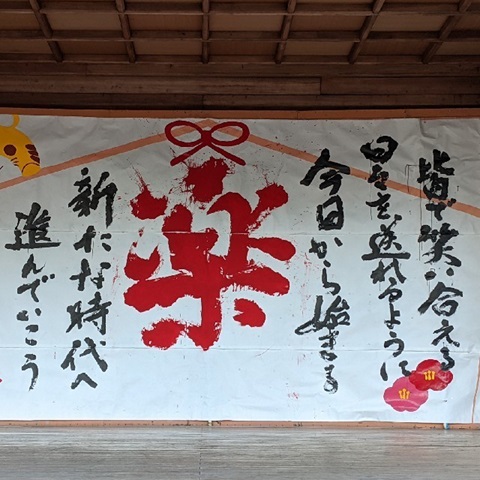 皆で笑い合える
日々を送れるように
今日から始まる
楽
新たな時代へ
進んでいこう